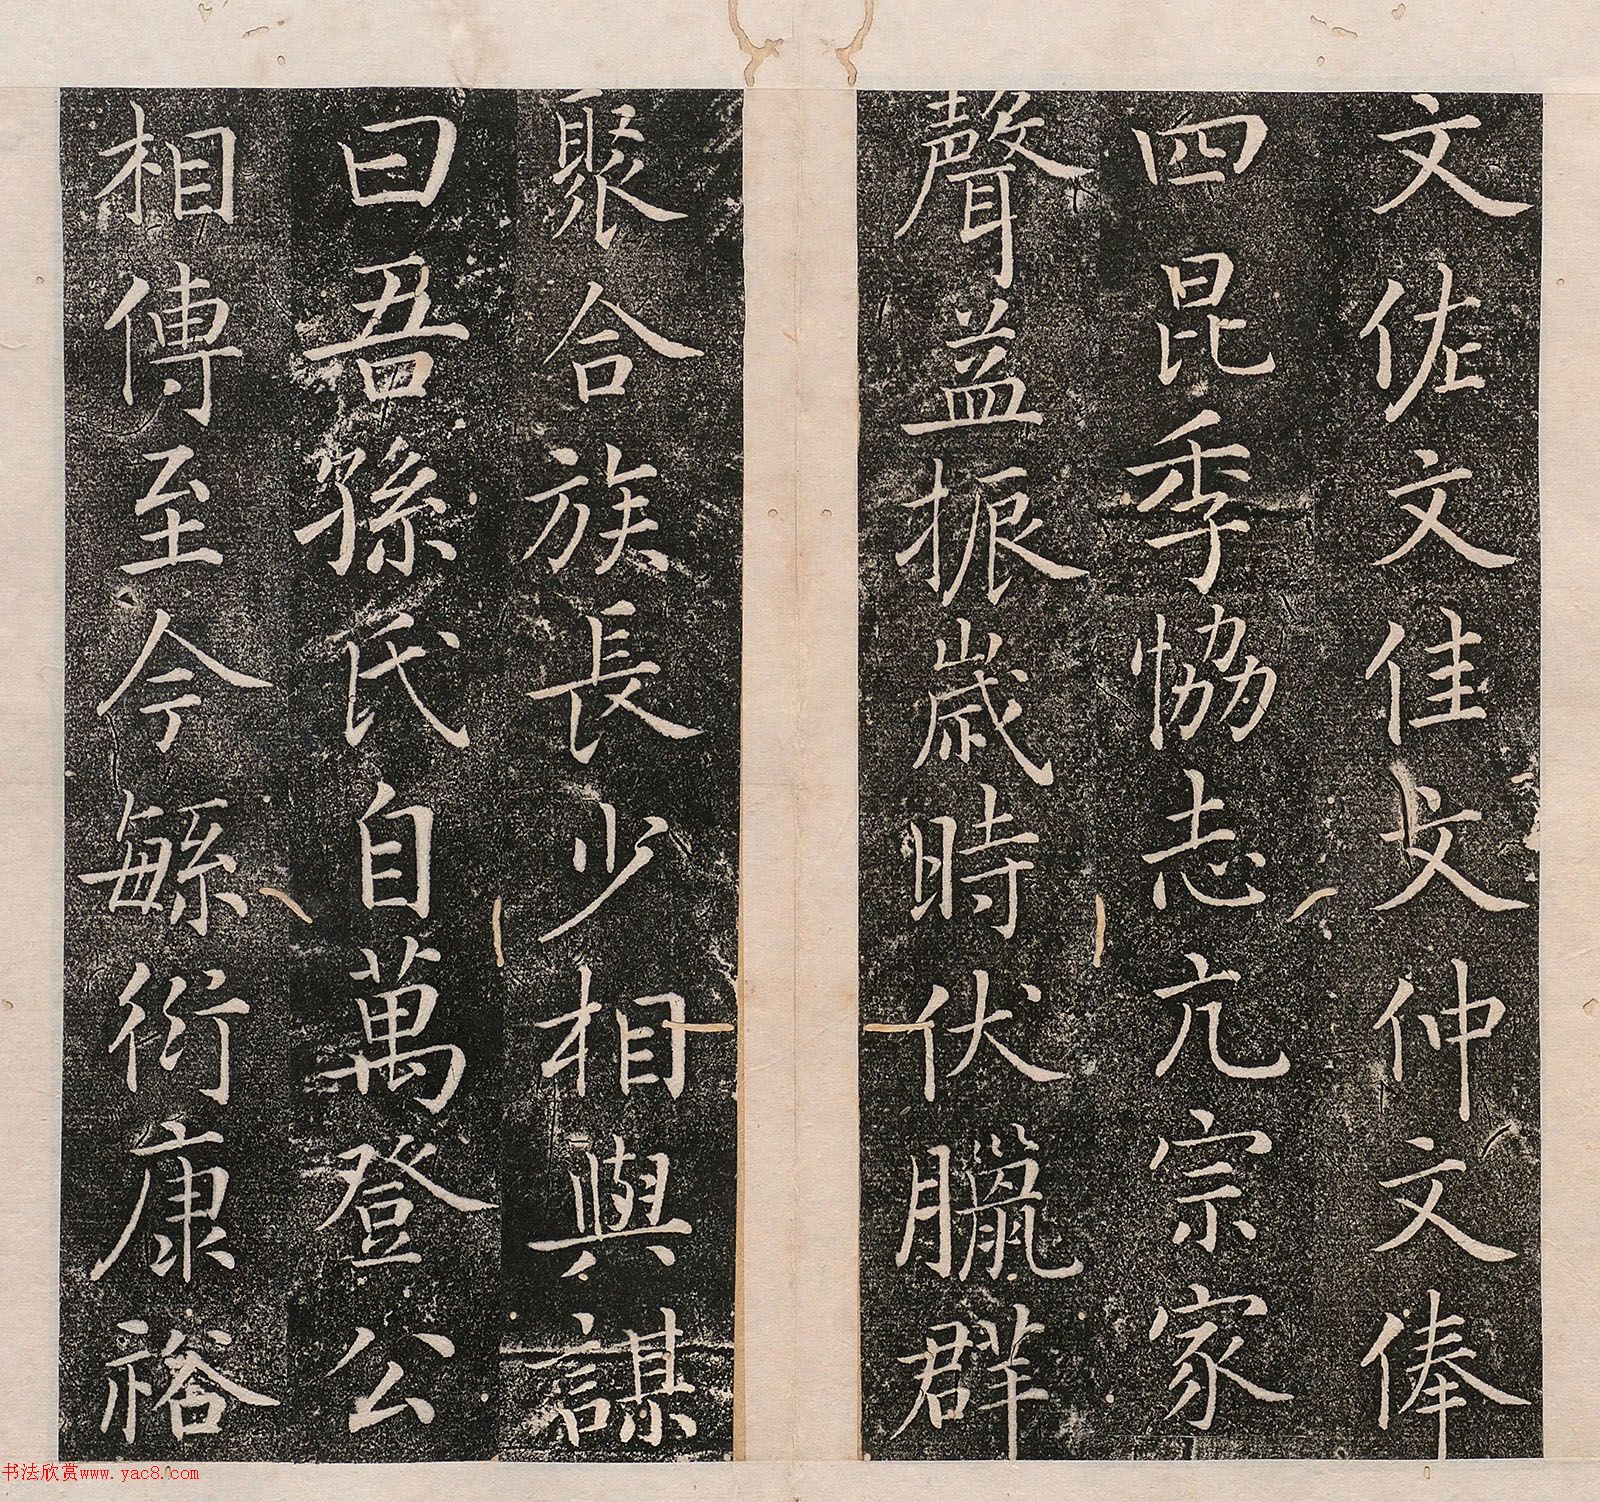 文佐文佳文仲文俸
四昆季恊志亢宗家
聲益振歲時伏臘群
聚合族長少相與謀
曰吾孫氏自萬登公
相傳至今繇衍康裕
书法欣赏www.yac8.com